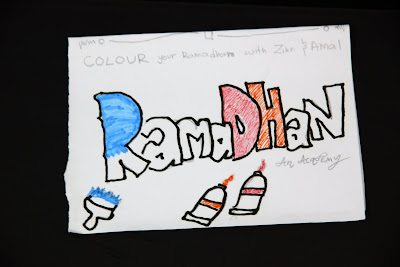 COLOUR your Ramadhan with Zikr & Amal
RamaDHaN
An Academy